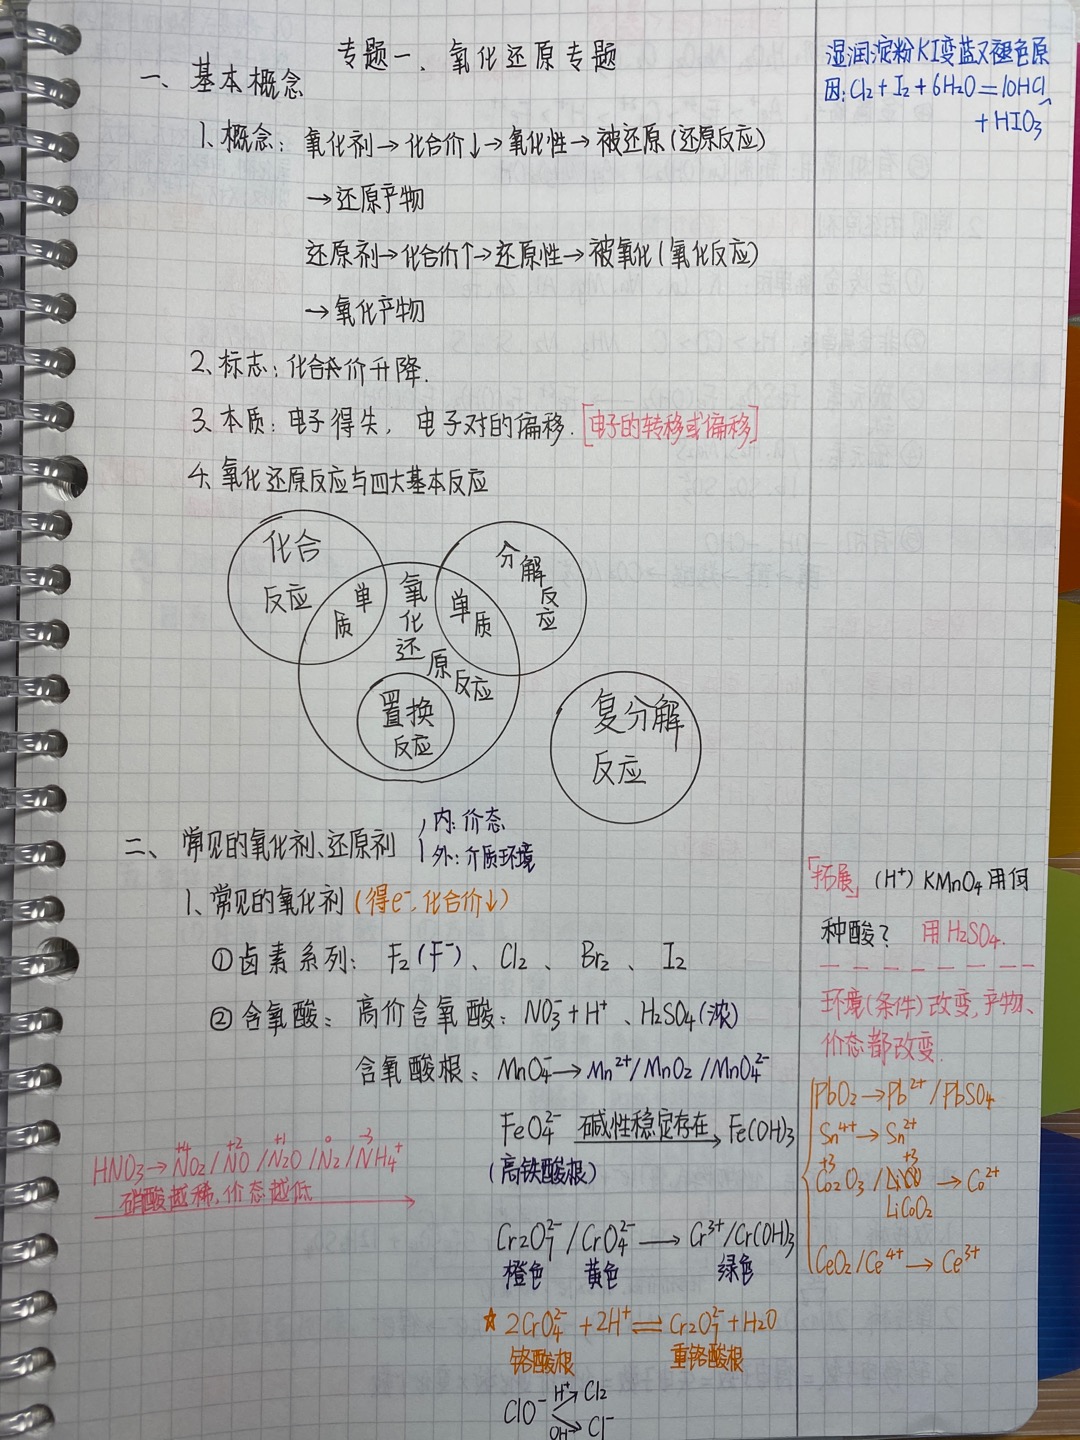 专题一、氧化还原专题
一、基本概念
湿润淀粉KI变蓝又褪色原
因:Cl₂+I₂+6H₂O=10HCl
+HIO₃
1、概念:氧化剂→化合价↓→氧化性→被还原(还原反应)
→还原产物
还原剂→化合价↑→还原性→被氧化(氧化反应)
→氧化产物
2、标志:化合价升降.
3、本质:电子得失,电子对的偏移.[电子的转移或偏移]
4、氧化还原反应与四大基本反应
化合
反应
单
质
氧
化
还
原
反应
单
质
分
解
反
应
置换
反应
复分解
反应
二、常见的氧化剂、还原剂
内:价态
外:介质环境
1、常见的氧化剂(得e⁻,化合价↓)
①卤素系列:F₂(F⁻)、Cl₂、Br₂、I₂
②含氧酸:高价含氧酸:NO₃⁻+H⁺、H₂SO₄(浓)
含氧酸根:MnO₄⁻→Mn²⁺/MnO₂/MnO₄²⁻
FeO₄²⁻ 碱性稳定存在→Fe(OH)₃
(高铁酸根)
+4 +2 +1 0 -3
HNO₃→NO₂/NO/N₂O/N₂/NH₄⁺
硝酸越稀,价态越低
Cr₂O₇²⁻/CrO₄²⁻→Cr³⁺/Cr(OH)₃
橙色 黄色 绿色
☆2CrO₄²⁻+2H⁺⇌Cr₂O₇²⁻+H₂O
铬酸根 重铬酸根
H⁺→Cl₂
ClO⁻
OH⁻→Cl⁻
「拓展」(H⁺)KMnO₄用何
种酸? 用H₂SO₄.
环境(条件)改变,产物、
价态都改变.
PbO₂→Pb²⁺/PbSO₄
Sn⁴⁺→Sn²⁺
+3 +3
Co₂O₃/ →Co²⁺
LiCoO₂
CeO₂/Ce⁴⁺→Ce³⁺